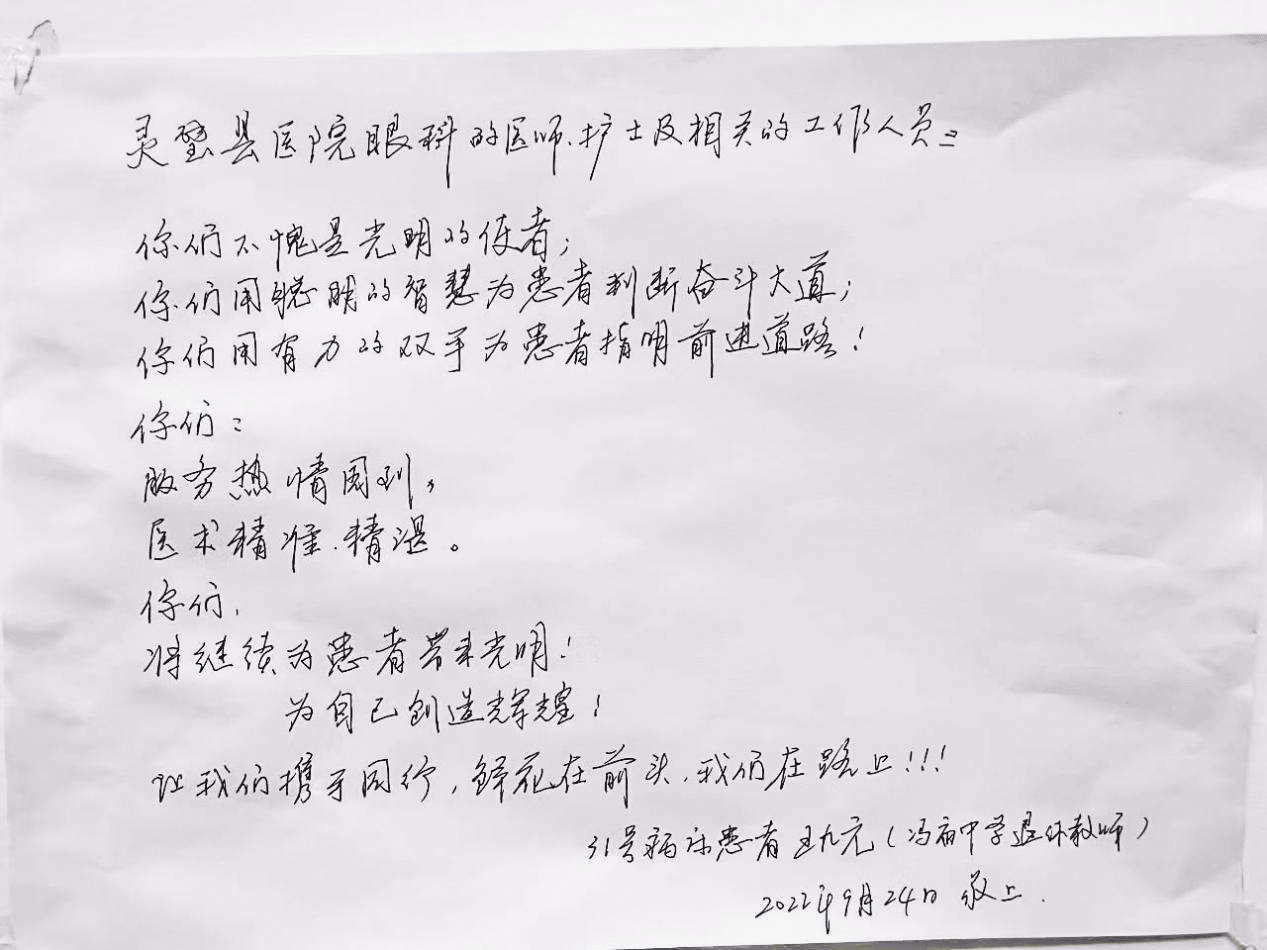 灵璧县医院眼科的医师、护士及相关的工作人员：
你们不愧是光明的使者；
你们用聪明的智慧为患者判断奋斗大道；
你们用有力的双手为患者指明前进道路！
你们：
服务热情周到，
医术精准、精湛。
你们，
将继续为患者带来光明！
为自己创造辉煌！
让我们携手同行，鲜花在前头，我们在路上！！！
31号病床患者 王九元（冯庙中学退休教师）
2022年9月24日 敬上.